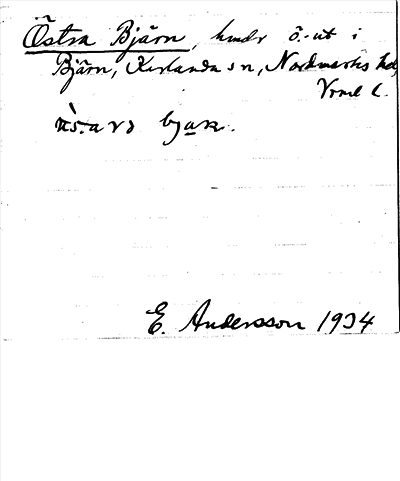 Östra Bjärn, hmdr ö.-ut i
Bjärn, Karlanda sn, Nordmarks hd,
Vrml l.
E. Andersson 1934